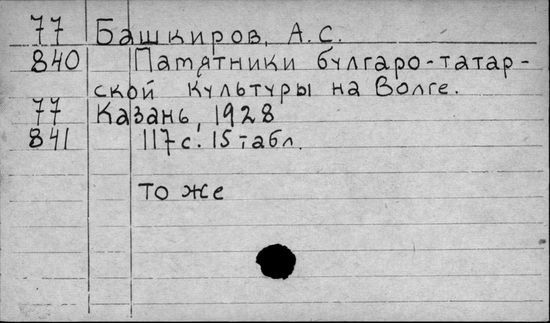 77 Башкиров, А.С.
840 Памятники булгаро-татар-
ской культуры на Волге.
77 Казань, 1928
841 117 с. 15 табл.
то же